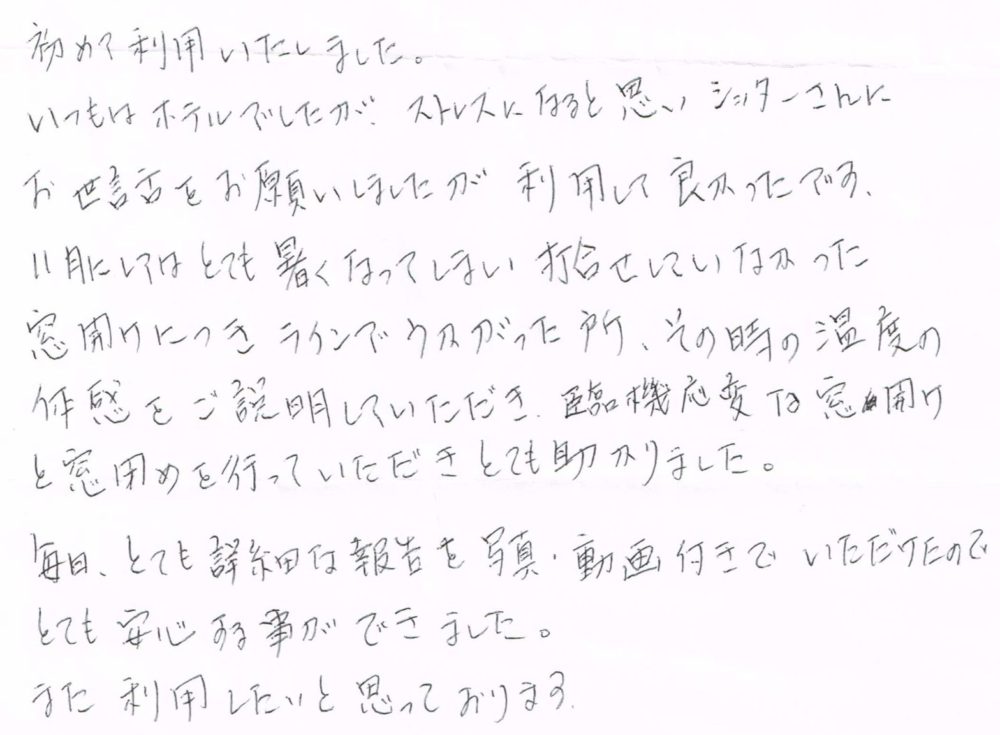 初めて利用いたしました。
いつもはホテルでしたが、ストレスになると思い シッターさんに
お世話をお願いしましたが 利用して良かったです、
11月にしてはとても暑くなってしまい 打合せしていなかった
窓開けにつき ラインでウカガった所、その時の温度の
体感をご説明していただき、臨機応変な窓開け
と窓閉めを行っていただきとても助かりました。
毎日、とても詳細な報告を写真・動画付きでいただけたので
とても安心する事ができました。
また利用したいと思っております。